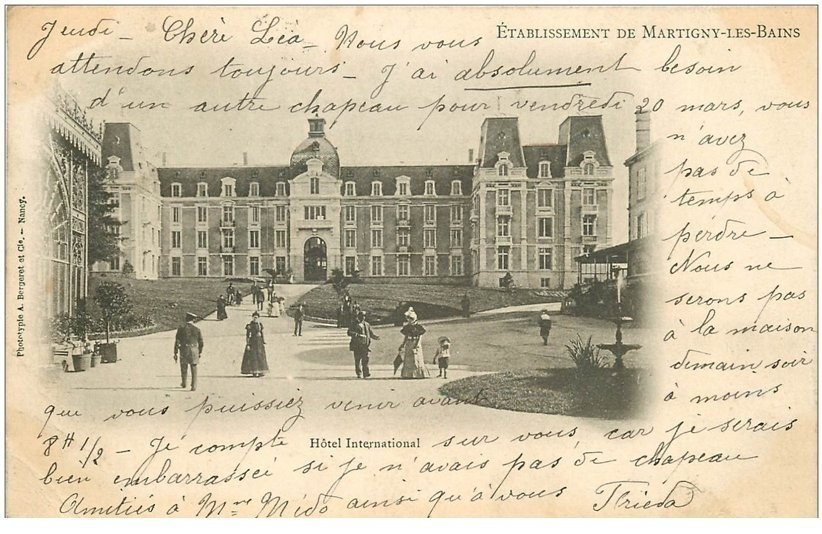 ÉTABLISSEMENT DE MARTIGNY-LES-BAINS
Jeudi - Chère Léa - Nous vous
attendons toujours - J'ai absolument besoin
d'un autre chapeau pour vendredi 20 mars, vous
n'avez
pas de
temps à
perdre -
Nous ne
serons pas
à la maison
demain soir
à moins
que vous puissiez venir avant
8H 1/2 - Je compte sur vous car je serais
bien embarrassée si je n'avais pas de chapeau
Amitiés à Mme Mido ainsi qu'à vous Frieda
Hôtel International
Phototypie A. Bergeret et Cie. - Nancy.